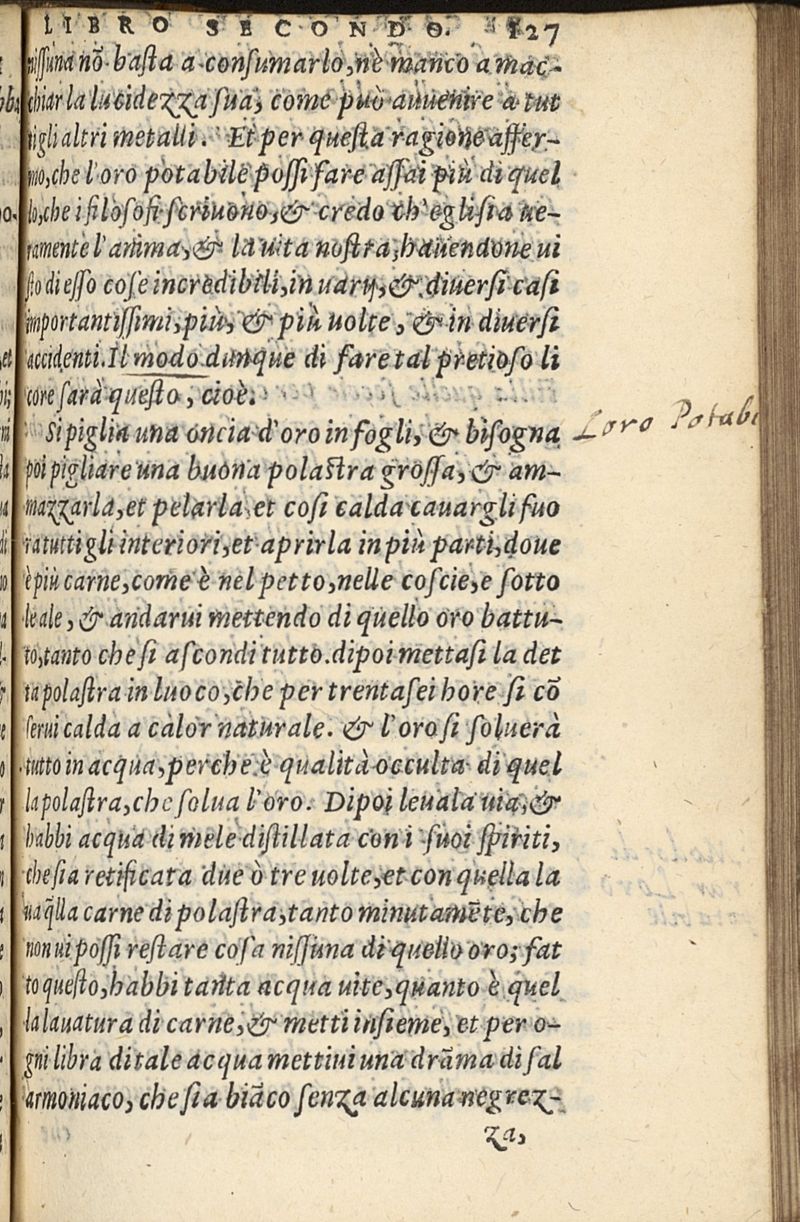 LIBRO SECONDO. 127
nissuna nõ basta a consumarlo, nè manco a mac-
chiar la lucidezza sua, come può auuenire a tut
ti gli altri metalli. Et per questa ragione affer-
mo, che l'oro potabile possi fare assai più di quel
lo, che i filosofi scriuono, & credo ch'egli sia ue-
ramente l'anima, & la uita nostra, hauendone ui
sto di esso cose incredibili, in uarij, & diuersi casi
importantissimi, più, & più uolte, & in diuersi
accidenti. Il modo dunque di fare tal pretioso li
core sarà questo, cioè.
Si piglia una oncia d'oro in fogli, & bisogna
Loro Potabi
poi pigliare una buona polastra grossa, & am-
mazzarla, et pelarla, et cosi calda cauargli fuo
ra tutti gli interiori, et aprirla in più parti, doue
è più carne, come è nel petto, nelle coscie, e sotto
le ale, & andarui mettendo di quello oro battu-
to, tanto che si ascondi tutto. dipoi mettasi la det
ta polastra in luoco, che per trentasei hore si cõ
serui calda a calor naturale. & l'oro si soluerà
tutto in acqua, perche è qualità occulta di quel
la polastra, che solua l'oro. Dipoi leuala uia, &
habbi acqua di mele distillata con i suoi spiriti,
che sia retificata due ò tre uolte, et con quella la
ua q̃lla carne di polastra, tanto minutamẽte, che
non ui possi restare cosa nissuna di quello oro; fat
to questo, habbi tanta acqua uite, quanto è quel
la lauatura di carne, & metti insieme, et per o-
gni libra di tale acqua mettiui una drãma di sal
armoniaco, che sia biãco senza alcuna negrez-
za,